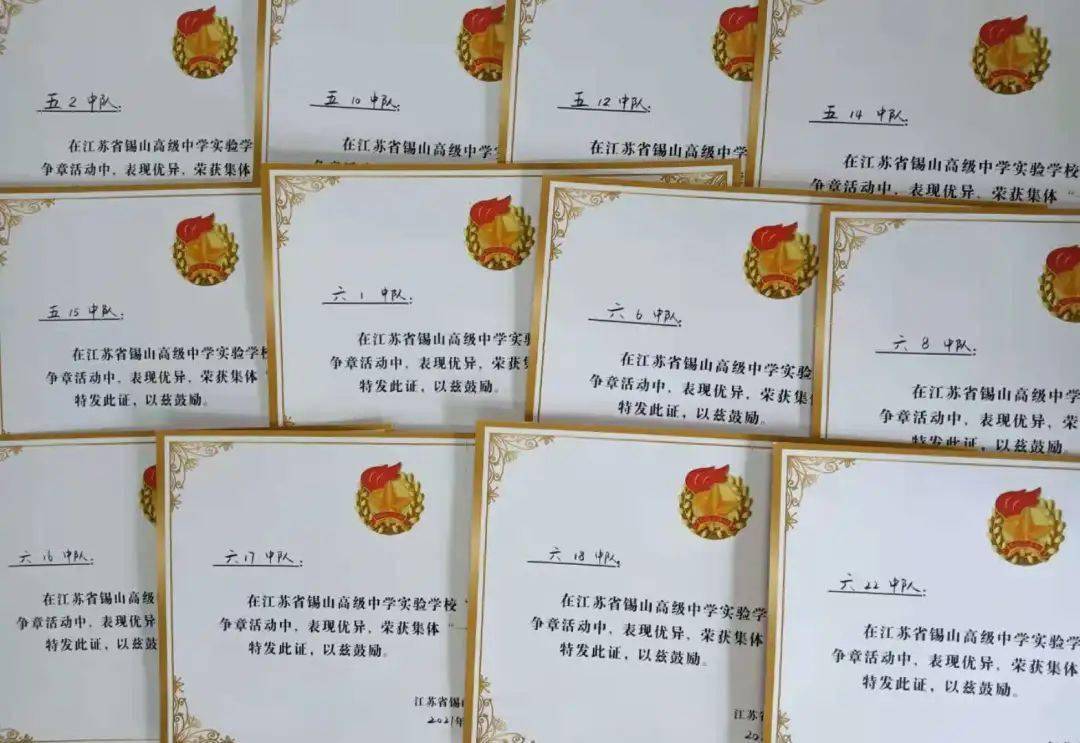 五 2 中队:
在江苏省锡山高级中学实验学
争章活动中，表现优异，荣获集体
五 10 中队:
在江苏省锡山高级中学
争章活动中，表现优异，荣获集
五 12 中队:
在江苏省锡山高级中学实
争章活动中，表现优异，荣获
五 14 中队:
在江苏省锡山高级中学实验学校
争章活动中，表现优异，荣获集体“
五 15 中队:
在江苏省锡山高级中学实验学校
争章活动中，表现优异，荣获集体“
特发此证，以兹鼓励。
六 1 中队:
在江苏省锡山高级中学实
争章活动中，表现优异，荣获集
特发此证，以兹鼓励。
六 6 中队:
在江苏省锡山高级中学实验
争章活动中，表现优异，荣获集体
特发此证，以兹鼓励。
六 8 中队:
在江苏省锡山高级中学
争章活动中，表现优异，荣
特发此证，以兹鼓励
六 16 中队:
在江苏省锡山高级
争章活动中，表现优异
特发此证，以兹鼓
六 17 中队:
在江苏省锡山高级中学实验学校“
争章活动中，表现优异，荣获集体“一
特发此证，以兹鼓励。
江苏省锡山
2021年
六 18 中队:
在江苏省锡山高级中学实验学
争章活动中，表现优异，荣获集体
特发此证，以兹鼓励。
江苏省
六 22 中队:
在江苏省锡山高级中学实验学
争章活动中，表现优异，荣获集体
特发此证，以兹鼓励。